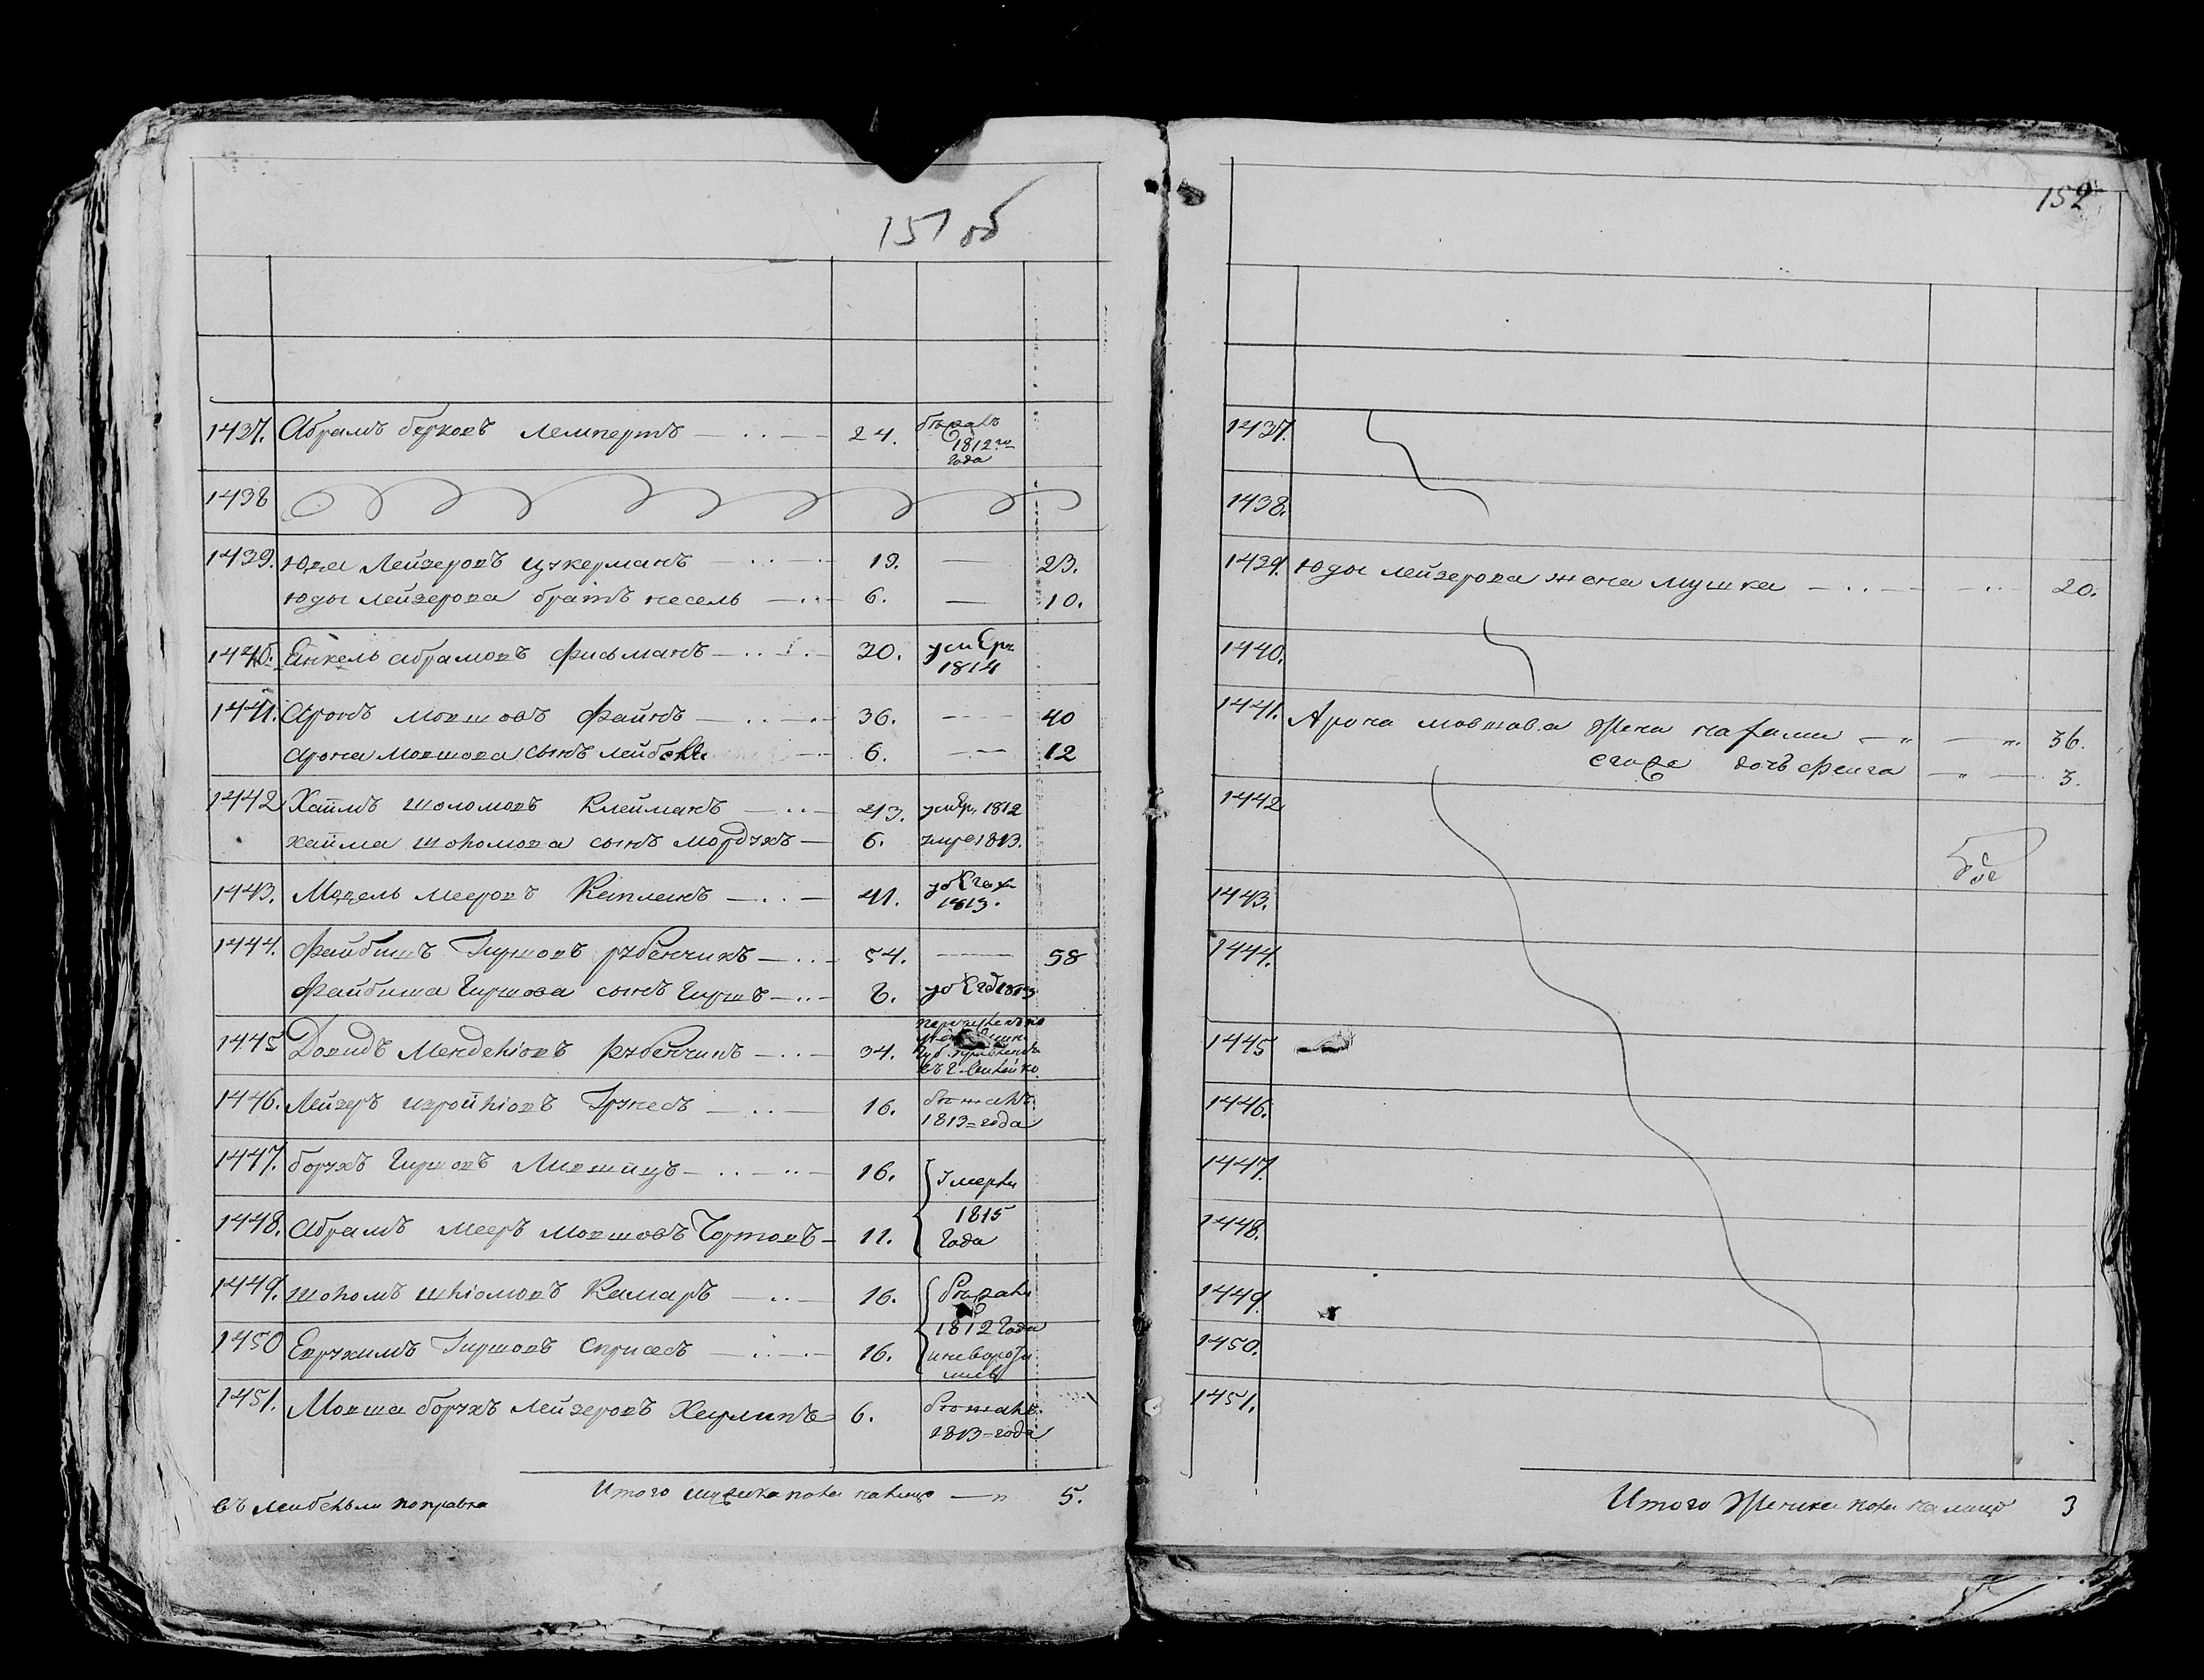 151 об
1437. Абрамъ берковъ Лемпертъ 24. бѣжалъ 1812го года
1438
1439. Юда Лейзеровъ Цукерманъ 19. — 23.
Юды Лейзерова братъ несель 6. — 10.
1440. Енкель абрамовъ Фисьманъ 30. умеръ 1814
1441. Аронъ Мовшовъ Файнъ 36. — 40
Арона Мовшова сынъ Лейб 6. — 12
1442 Хаймъ Шоломовъ Клейманъ 43. умеръ 1812
хайма Шоломова сынъ Мордухъ 6. умре 1813.
1443. Мееровъ Капланъ 41. 1813.
1444. Файбишъ Гиршовъ рубенчикъ 54. — 58
Файбиша Гиршова сынъ Гиршъ 6.
1445 Довидъ Менделіовъ рубенчикъ 34.
1446. Лейзеръ изройліовъ 16. бежалъ 1813=года
1447. борухъ Гиршовъ Лившицъ 16. Умерли
1448. Абрамъ Мееръ Мовшовъ Чортовъ 11. 1815 года
1449. Шоломъ Шліомовъ Камаръ 16. бѣжали
1450 Евзухимъ Гиршовъ 16. 1812 года
1451. Мовша борухъ Лейзеровъ 6. бежалъ 1813=года
Итого мужеска пола налицо 5.
въ Лейбеньли поправка
152
1437.
1438.
1439. Юды Лейзерова жена Мушка 20.
1440.
1441. Арона мовшова Жена 36.
егоже дочь Фейга 3.
1442
1443.
1444.
1445
1446.
1447.
1448.
1449.
1450.
1451.
Итого Женска пола налицо 3